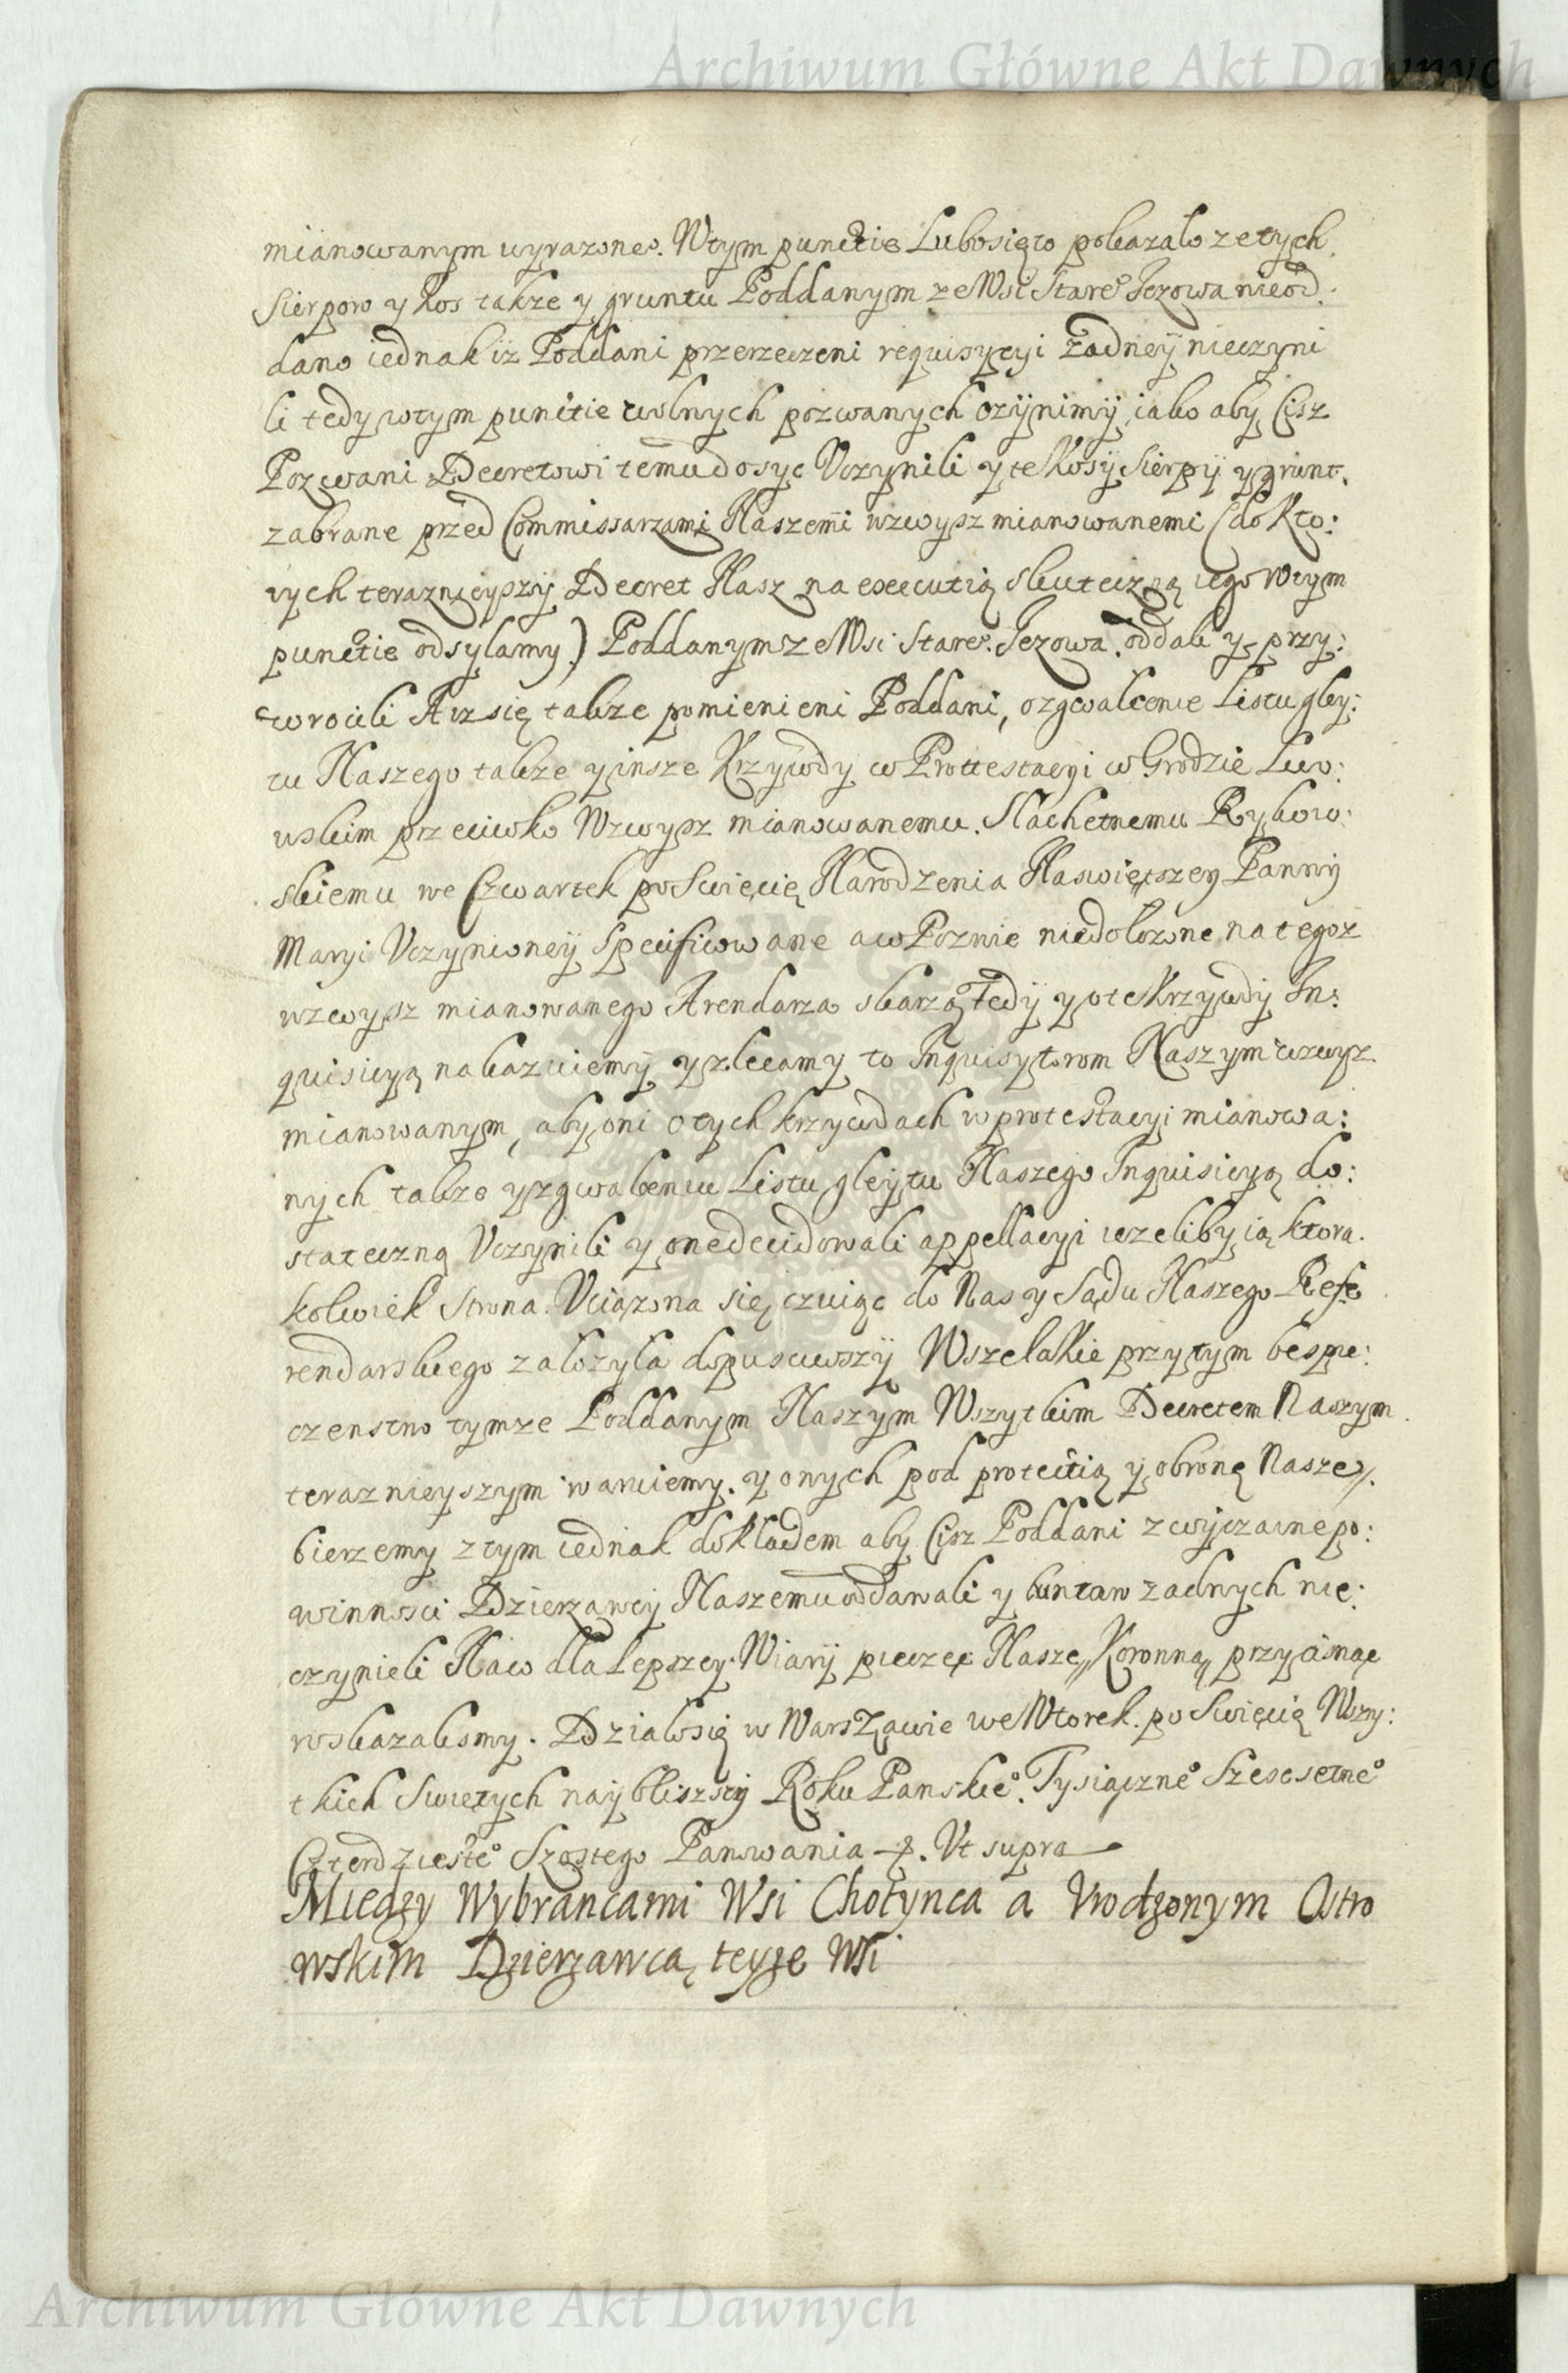 Archiwum Główne Akt Dawnych
mianowanym wyrazone°. Wtym punctie Lubosięto pokazało zetych
Sierpow y kos także y gruntu Poddanym zeWsi Stare° Jezowa nieod:
dano iednak iż Poddani przerzeczeni requisycyi żadneÿ nieczyni
li tedy wtym punctie wolnych pozwanych czÿnimÿ iako aby Cisz
Pozwani Decretowi temu dosyc Vczynili y te Kosÿ Sierpÿ y grunt.
zabrane przed Commissarzami Naszemi wzwysz mianowanemi (do Kto:
rych teraznieyszÿ Decret Nasz na executią skuteczną iego Wtym
punctie odsylamy) Poddanym ze Wsi Stare°. Jezowa oddali y przy:
wrocili A iz się także pomienieni Poddani, ozgwalcenie Listu gley:
tu Naszego także y insze Krzywdy w Prottestacyi w Grodzie Lwo:
wskim przeciwko Wzwysz mianowanemu Slachetnemu Rybow:
skiemu we Czwartek po Swięcię Narodzenia Naswiętszey Pannÿ
Maryi Vczynioneÿ Specificowane a w Pozwie niedolożone na tegoz
wzwysz mianowanego Arendarza skarzą Tedÿ y o te Krzywdÿ In:
quisicyą nakazuiemÿ y zlecamy to Inquisytorom Naszym wzwyz
mianowanym, aby oni o tych krzywdach w protestacyi mianowa:
nych także y zgwalceniu Listu gleÿtu Naszego Inquisicyą do:
stateczną Vczynili y one decidowali appellacyi iezeliby ią ktora
kolwiek Strona Vciązona się czuiąc do Nas y Sądu Naszego Refe
rendarskiego zalożyla dopusciwszÿ Wszelakie przytym bespie:
czenstwo tymze Poddanym Naszym Wszytkim Decretem Naszym
teraznieyszym waruiemy. y onych pod protectią y obronę Nasze
bierzemy z tym iednak dokladem aby Cisz Poddani zwÿczaine po:
winnosci Dzierzawcÿ Naszemu oddawali y buntow zadnych nie:
czynieli Naco dla Lepszey Wiarÿ pieczęc Nasze Koronną przycisnąc
roskazalismy. Działosię w Warszawie we Wtorek po Swięcię Wszy:
tkich Swietych naÿbliszszÿ Roku Panskie° Tysiączne° Szescsetne°
Czterdzieste° Szostego Panowania Vt supra
Miedzy Wybrancami Wsi Chotynca a Vrodzonym Ostro
wskim Dzierzawcą teyze Wsi
Archiwum Główne Akt Dawnych